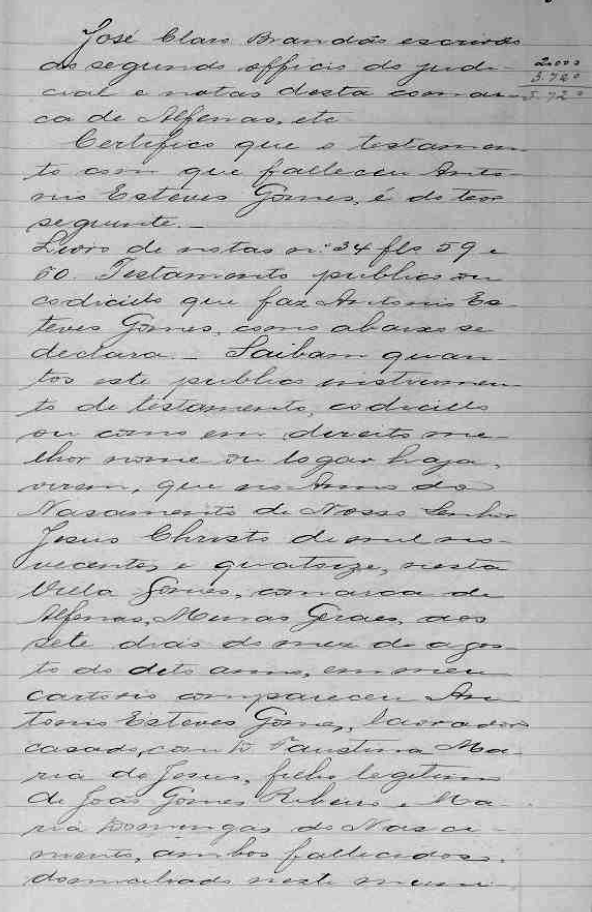 José Claro Brandão escrivão
do segundo officio do judi-
cial e notas desta comar-
ca de Alfenas, etc
2.000
3.720
5.720
Certifico que o testamen
to com que falleceu Anto-
nio Esteves Gomes, é do teor
seguinte. -
Livro de notas nº 34 fls 59 e
60. Testamento publico ou
codicillo que faz Antonio Es-
teves Gomes, como abaixo se
declara. - Saibam quan-
tos este publico instrumen-
to de testamento, codicillo
ou como em direito me-
lhor nome ou logar haja,
virem, que no Anno do
Nascimento de Nosso Senhor
Jesus Christo de mil no-
vecentos e quatorze, nesta
Villa Gomes, comarca de
Alfenas, Minas Geraes, aos
sete dias do mez de agos-
to do dito anno, em meu
cartorio compareceu An
tonio Esteves Gomes, lavrador
casado, com D Faustina Ma-
ria de Jesus, filho legitimo
de João Gomes Ribeiro e Ma-
ria Domingas do Nasci-
mento, ambos fallecidos,
domiciliado neste muni-